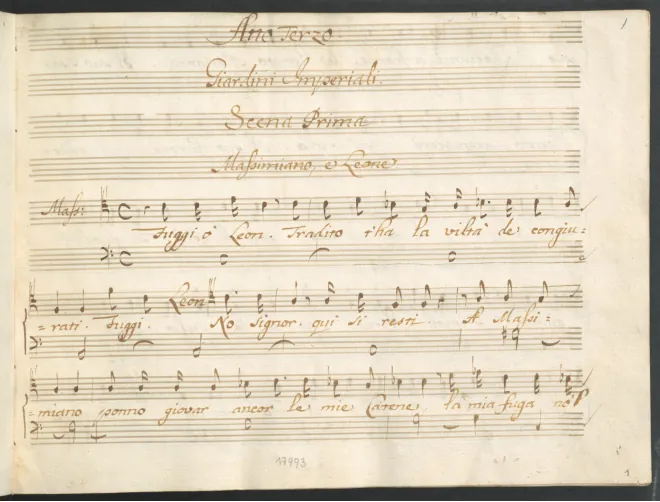 1
Atto Terzo
Giardini Imperiali.
Scena Prima
Massimiano, e Leone
Mass:
Fuggi o' Leon. Tradito t'ha la viltà de congiu:
Leon
=rati. Fuggi. No signor. qui si resti. A Massi=
=miano ponno giovar ancor le mie Catene, la mia fuga nò
17993
1